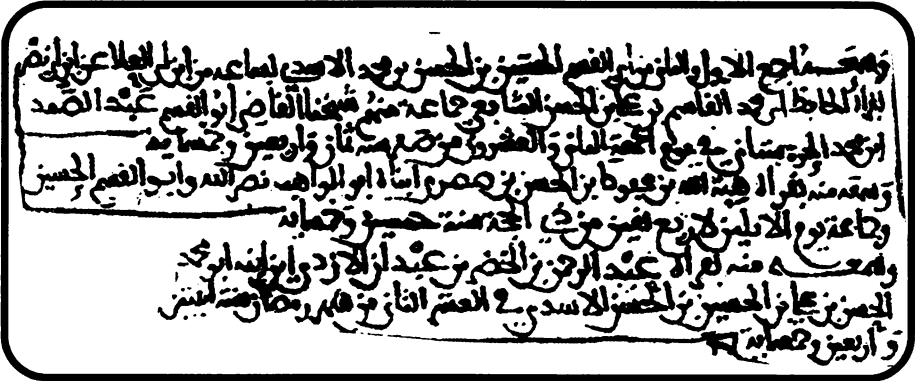 وسمع الاول والثاني من ابي القسم الحسين بن الحسن بن محمد الاسدي بسماعه من ابن ابي العلا عن ابن ابي نصر
الحافظ ابو محمد القاسم بن علي بن الحسن الشافعي جماعة منهم شيخنا القاضي ابو القسم عبد الصمد
ابن محمد في يوم الجمعة الثاني والعشرون من صفر سنة ثمان واربعين وخمسمايه
وسمعه منه بقراة هبة الله بن محفوظ بن الحسن بن صصرى ابناه ابو المواهب نصر الله وابو القسم الحسين
وجماعة يوم الاثنين لاربع بقين من ذي الحجة سنة خمسين وخمسمايه
وسمعه منه بقراة عبد الرحمن بن الخضر بن عبدان الازدي ابن ابنه ابو محمد
الحسن بن علي بن الحسين بن الحسن الاسدي في العشر الثاني من شهر رمضان سنة اثنتين
واربعين وخمسمايه